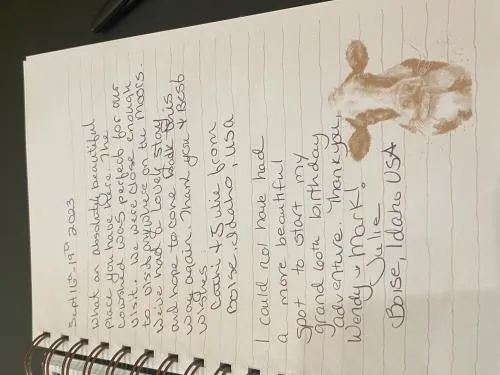 Sept 16th - 19th 2023
What an absolutely beautiful
place you have here. The
cowshed was perfect for our
visit. We were close enough
to visit anywhere on the moors.
We've had a lovely stay
and hope to come back this
way again. Thank you & Best
wishes.
+ Julie from
Boise, Idaho, USA
I could not have had
a more beautiful
spot to start my
grand 60th birthday
adventure. Thank you,
Wendy & Mark.
Julie
Boise, Idaho USA